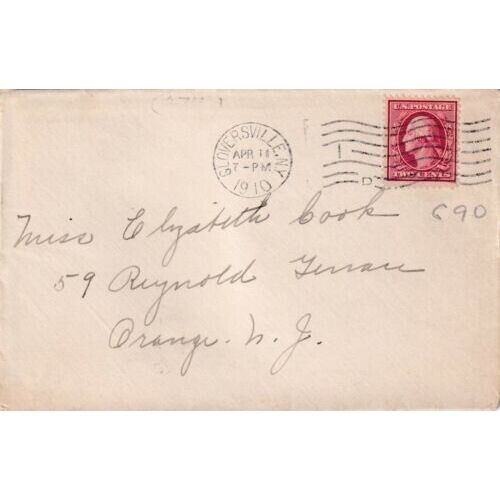 GLOVERSVILLE, N.Y.
APR 11
7-PM
1910
U.S. POSTAGE
TWO CENTS
D
690
Miss Elizabeth Cook
59 Reynold Terrace
Orange. N. J.